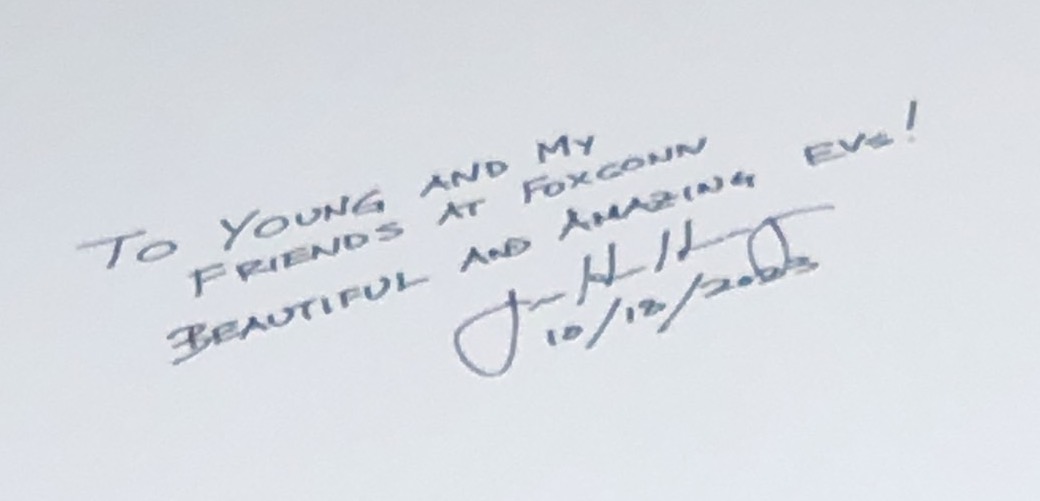 To YOUNG AND MY
FRIENDS AT FOXCONN
BEAUTIFUL AND AMAZING EVs!
10/18/2023